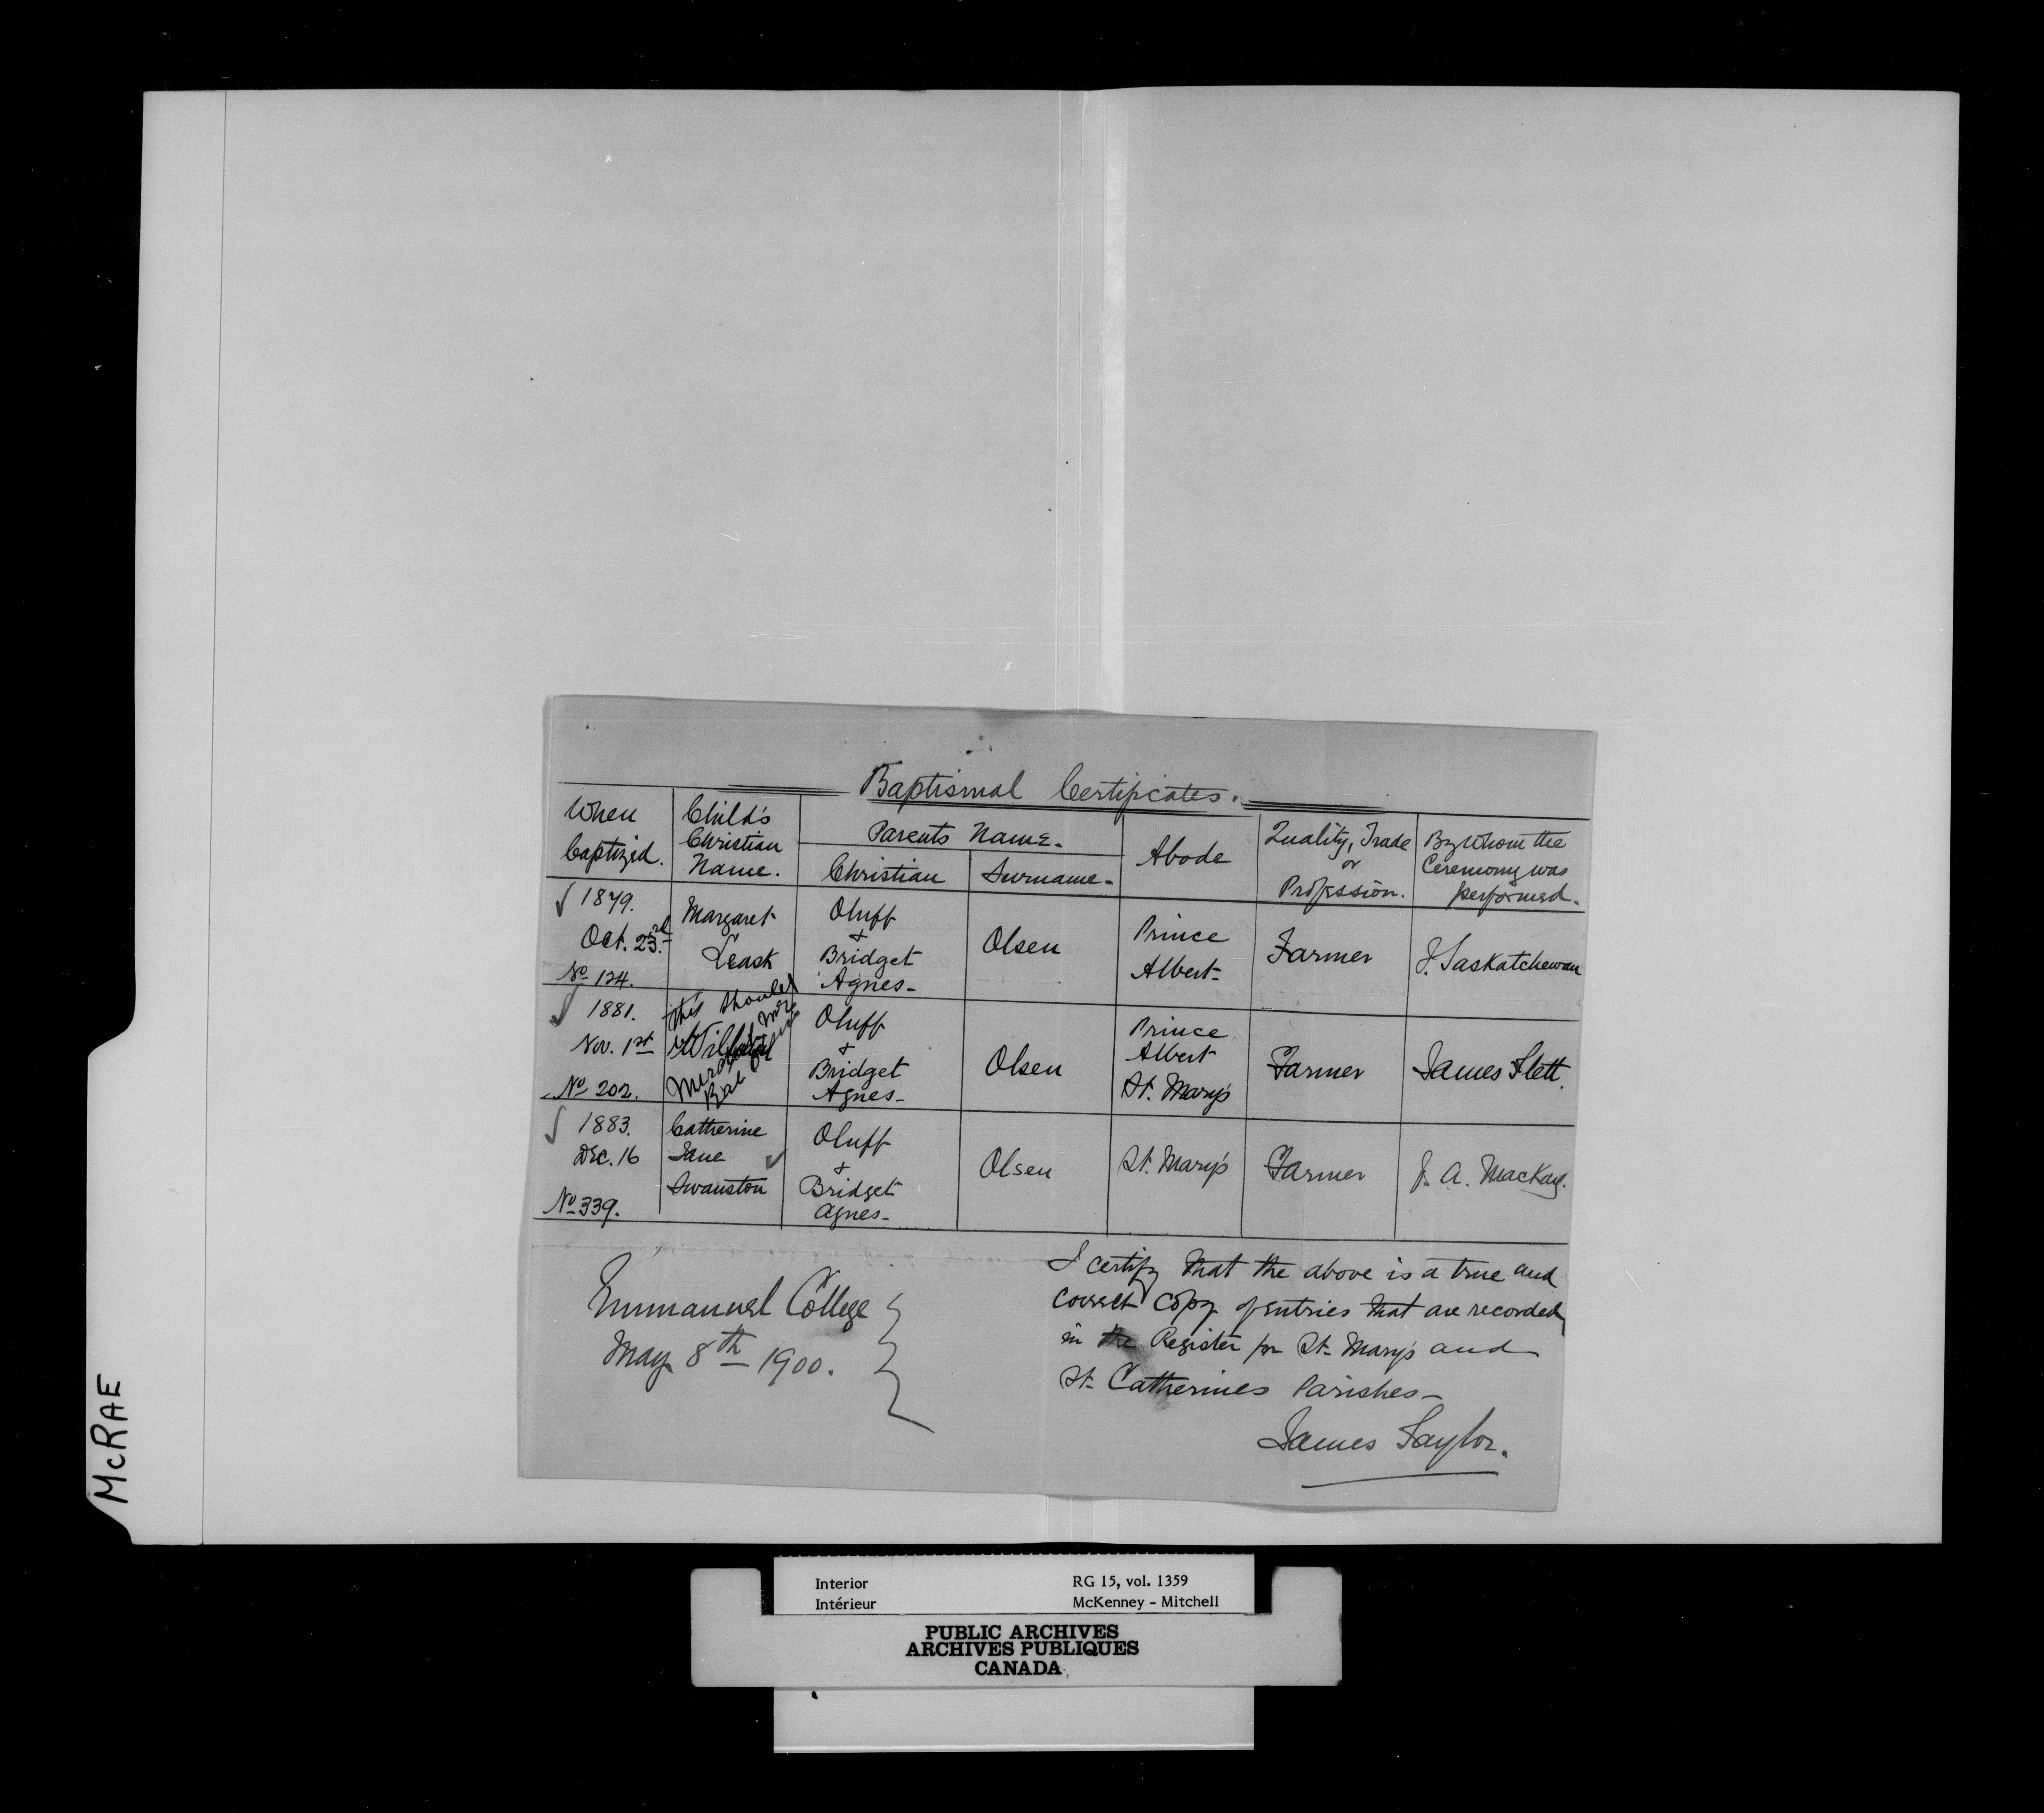 Baptismal Certificates.
When Baptized.
Child's Christian Name.
Parents Name.
Christian
Surname
Abode
Quality, Trade or Profession.
By Whom the Ceremony was performed.
1879. Oct. 23rd No 124.
Margaret Leask
Oluff & Bridget Agnes
Olsen
Prince Albert
Farmer
J. Saskatchewan
1881. Nov. 1st No 202.
This should
Oluff & Bridget Agnes
Olsen
Prince Albert St. Mary's
Farmer
James Flett.
1883. Dec. 16 No 339.
Catherine Jane Swanston
Oluff & Bridget Agnes
Olsen
St. Mary's
Farmer
J. A. Mackay.
Emmanuel College
May 8th 1900.
I certify that the above is a true and
correct copy of entries that are recorded
in the Register for St. Mary's and
St. Catherines Parishes
James Taylor.
McRAE
Interior RG 15, vol. 1359
Intérieur McKenney - Mitchell
PUBLIC ARCHIVES
ARCHIVES PUBLIQUES
CANADA